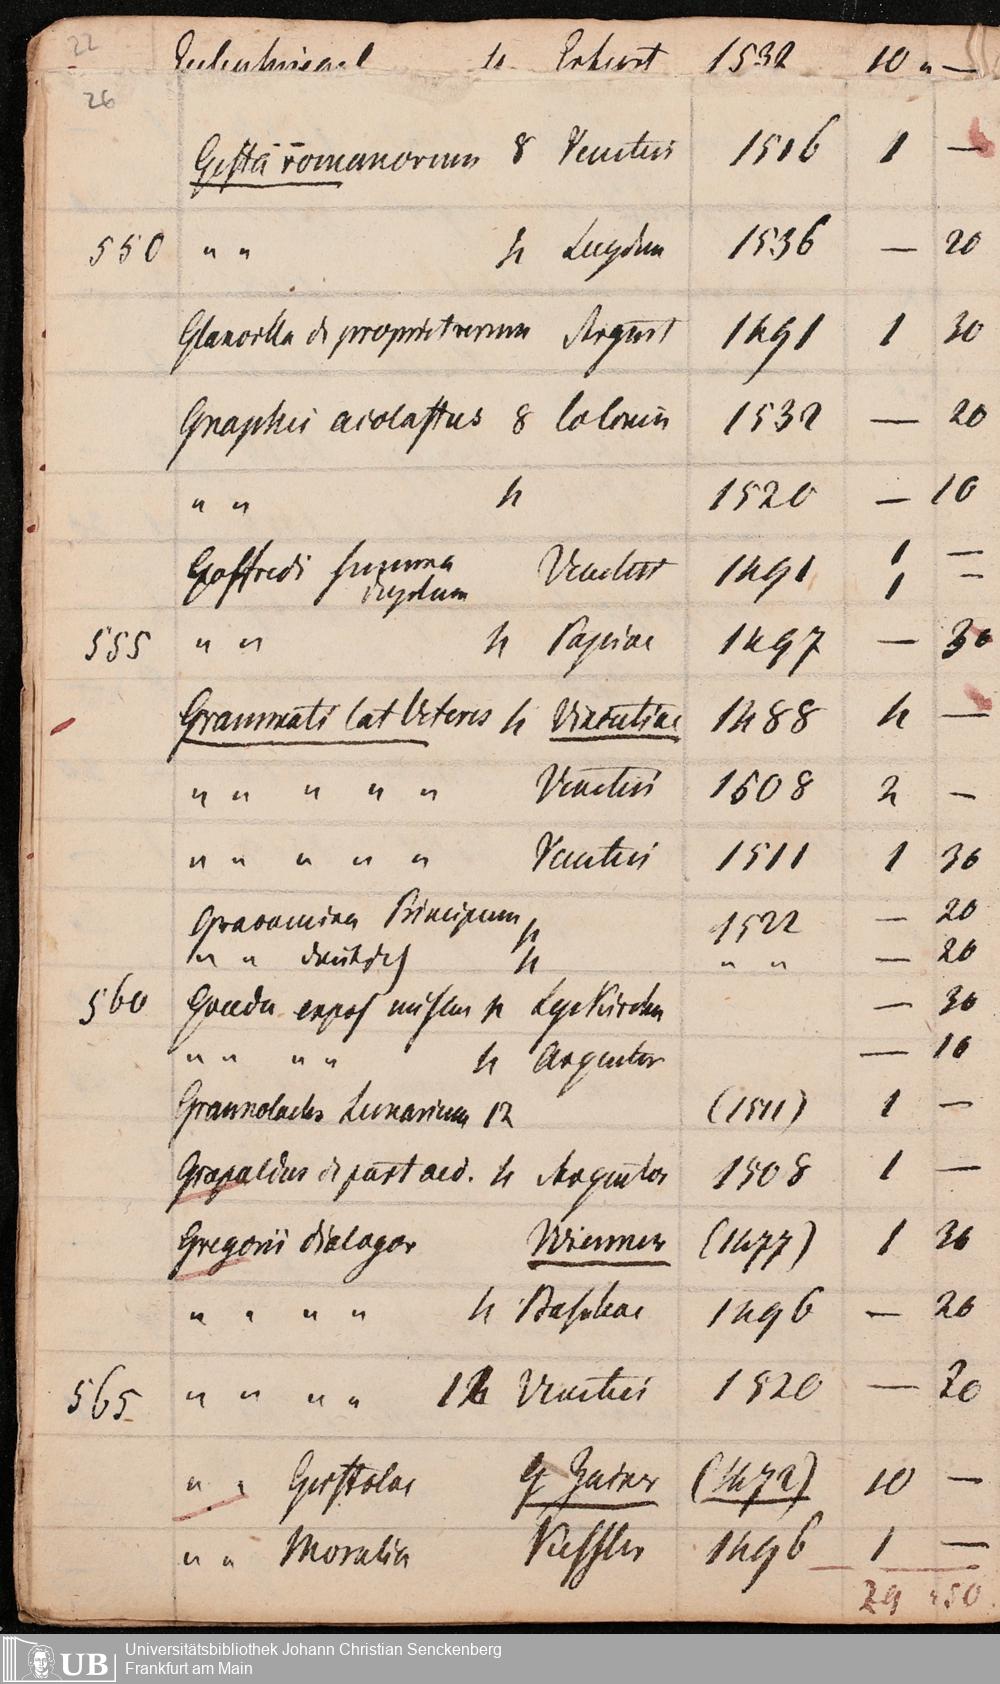 22
Eulenspiegel 4 Erfurt 1532 10 " —
26
Gesta romanorum 8 Venetiis 1516 1 —
550 " " 4 Lugdun 1536 — 20
Glanvilla de propriet rerum Argent 1491 1 30
Gnaphei acolastus 8 Coloniae 1532 — 20
" " 4 1520 — 10
Goffredi summa Venetiis 1491 1 —
1 —
555 " " 4 Papiae 1497 — 30
Grammati lat Veteres 4 Vincentiae 1488 4 —
" " " " " Venetiis 1508 2 —
" " " " " Venetiis 1511 1 30
Gravamina Principum 4 1522 — 20
" " deutsch 4 " " — 20
560 4 — 30
" " " " 4 Argentor — 10
Granollachs Lunarium 12 (1511) 1 —
Grapaldus de part aed. 4 Argentor 1508 1 —
Gregorii dialogor (1477) 1 30
" " " " 4 Basileae 1496 — 20
565 " " " " 12 Venetiis 1520 — 20
" " Epistolae G Zainer (1472) 10 —
" " Moralia Kessler 1496 1 —
29 " 50
UB
Universitätsbibliothek Johann Christian Senckenberg
Frankfurt am Main